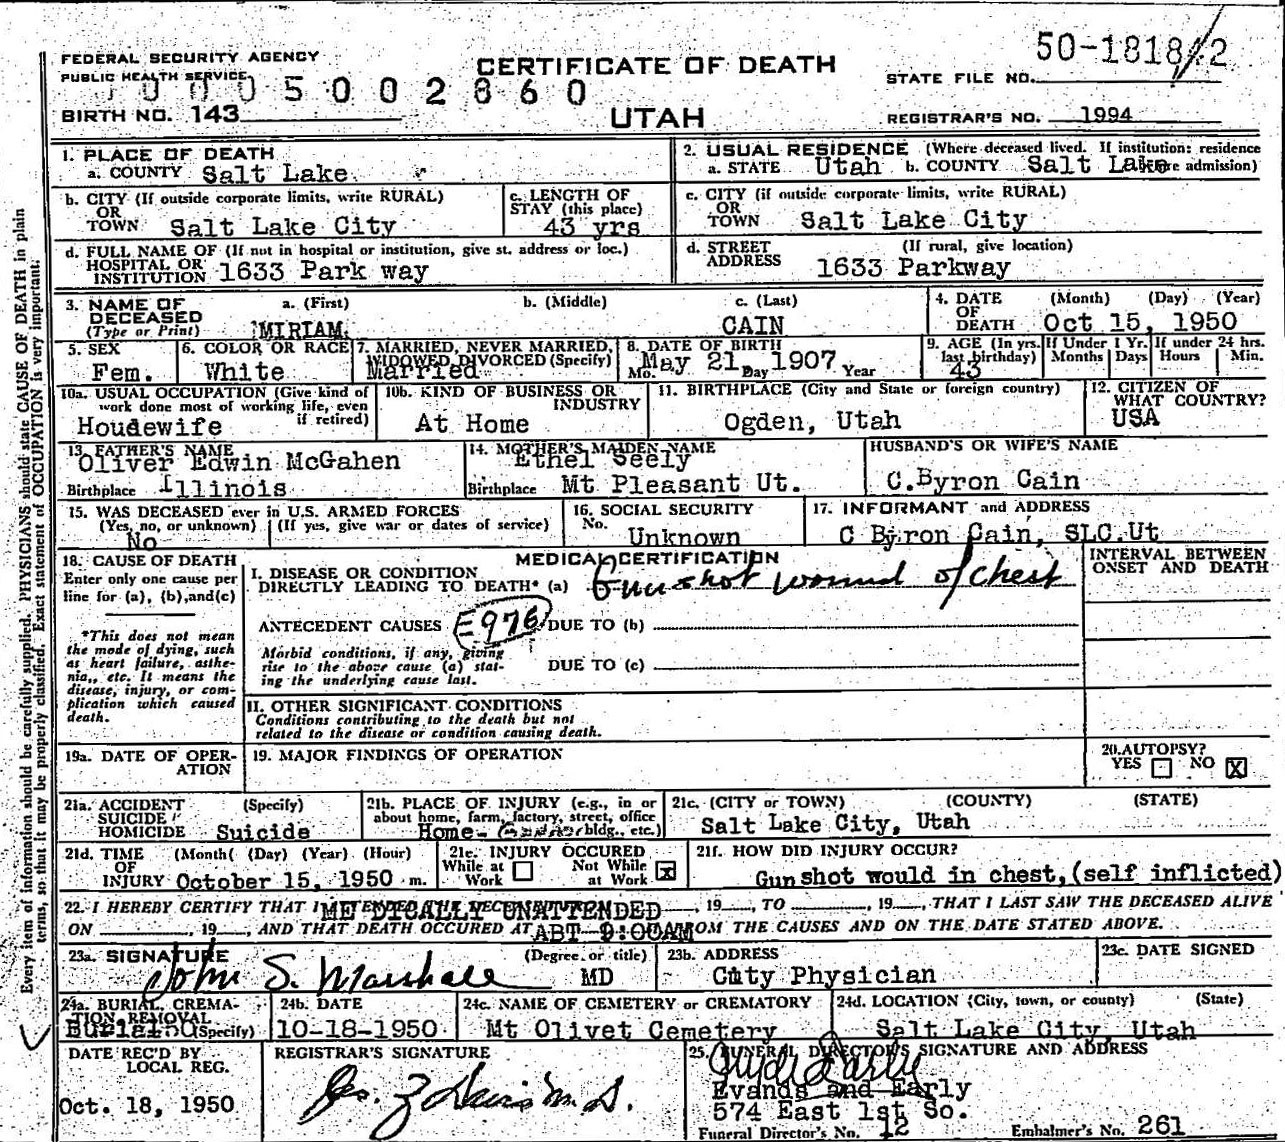 50-1818/2
FEDERAL SECURITY AGENCY
PUBLIC HEALTH SERVICE
CERTIFICATE OF DEATH
STATE FILE NO.
5 0 0 2 8 6 0
BIRTH NO. 143
UTAH
REGISTRAR'S NO. 1994
1. PLACE OF DEATH
a. COUNTY Salt Lake
2. USUAL RESIDENCE (Where deceased lived. If institution: residence
a. STATE Utah b. COUNTY Salt Lake admission)
b. CITY (If outside corporate limits, write RURAL)
OR
TOWN Salt Lake City
c. LENGTH OF
STAY (this place)
43 yrs
c. CITY (if outside corporate limits, write RURAL)
OR
TOWN Salt Lake City
d. FULL NAME OF (If not in hospital or institution, give st. address or loc.)
HOSPITAL OR
INSTITUTION 1633 Park way
d. STREET (If rural, give location)
ADDRESS 1633 Parkway
3. NAME OF DECEASED
(Type or Print)
a. (First) b. (Middle) c. (Last)
MIRIAM CAIN
4. DATE OF DEATH
(Month) (Day) (Year)
Oct 15, 1950
5. SEX
Fem.
6. COLOR OR RACE
White
7. MARRIED, NEVER MARRIED,
WIDOWED DIVORCED (Specify)
Married
8. DATE OF BIRTH
Mo. May 21 Day 1907 Year
9. AGE (In yrs. last birthday)
43
If Under 1 Yr.
Months Days
If under 24 hrs.
Hours Min.
10a. USUAL OCCUPATION (Give kind of
work done most of working life, even
if retired)
Houdewife
10b. KIND OF BUSINESS OR
INDUSTRY
At Home
11. BIRTHPLACE (City and State or foreign country)
Ogden, Utah
12. CITIZEN OF
WHAT COUNTRY?
USA
13. FATHER'S NAME
Oliver Edwin McGahen
Birthplace Illinois
14. MOTHER'S MAIDEN NAME
Ethel Seely
Birthplace Mt Pleasant Ut.
HUSBAND'S OR WIFE'S NAME
C.Byron Cain
15. WAS DECEASED ever in U.S. ARMED FORCES
(Yes, no, or unknown) (If yes, give war or dates of service)
No
16. SOCIAL SECURITY
No.
Unknown
17. INFORMANT and ADDRESS
C Byron Cain, SLC.Ut
18. CAUSE OF DEATH
Enter only one cause per
line for (a), (b),and(c)
*This does not mean
the mode of dying, such
as heart failure, asthe-
nia,, etc. It means the
disease, injury, or com-
plication which caused
death.
MEDICAL CERTIFICATION
I. DISEASE OR CONDITION
DIRECTLY LEADING TO DEATH* (a) Gunshot wound of chest
ANTECEDENT CAUSES E976 DUE TO (b)
Morbid conditions, if any, giving
rise to the above cause (a) stat-
ing the underlying cause last.
DUE TO (c)
II. OTHER SIGNIFICANT CONDITIONS
Conditions contributing to the death but not
related to the disease or condition causing death.
INTERVAL BETWEEN
ONSET AND DEATH
19a. DATE OF OPER-
ATION
19. MAJOR FINDINGS OF OPERATION
20. AUTOPSY?
YES NO X
21a. ACCIDENT (Specify)
SUICIDE
HOMICIDE Suicide
21b. PLACE OF INJURY (e.g., in or
about home, farm, factory, street, office
Home- bldg., etc.)
21c. (CITY or TOWN) (COUNTY) (STATE)
Salt Lake City, Utah
21d. TIME (Month( (Day) (Year) (Hour)
OF
INJURY October 15, 1950 m.
21e. INJURY OCCURED
While at Work Not While at Work X
21f. HOW DID INJURY OCCUR?
Gun shot would in chest, (self inflicted)
22. I HEREBY CERTIFY THAT I MEDICALLY UNATTENDED, 19, TO, 19, THAT I LAST SAW THE DECEASED ALIVE
ON, 19, AND THAT DEATH OCCURED AT ABT 9:00AM FROM THE CAUSES AND ON THE DATE STATED ABOVE.
23a. SIGNATURE (Degree or title)
John S. Marshall MD
23b. ADDRESS
City Physician
23c. DATE SIGNED
24a. BURIAL, CREMA-
TION REMOVAL
Burial (Specify)
24b. DATE
10-18-1950
24c. NAME OF CEMETERY or CREMATORY
Mt Olivet Cemetery
24d. LOCATION (City, town, or county) (State)
Salt Lake City, Utah
DATE REC'D BY
LOCAL REG.
Oct. 18, 1950
REGISTRAR'S SIGNATURE
25. FUNERAL DIRECTOR'S SIGNATURE AND ADDRESS
Evands and Early
574 East 1st So.
Funeral Director's No. 12 Embalmer's No. 261
Every item of information should be carefully supplied. PHYSICIANS should state CAUSE OF DEATH in plain
terms, so that it may be properly classified. Exact statement of OCCUPATION is very important.